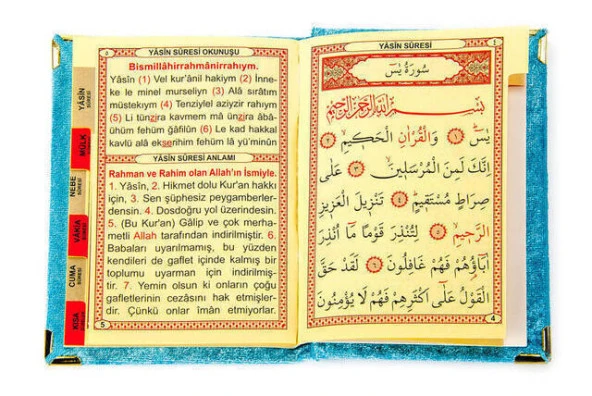 YÂSİN SÛRESİ OKUNUŞU
Bismillâhirrahmânirrahıym.
Yâsîn (1) Vel kur'ânil hakiym (2) İnne-
ke le minel murseliyn (3) Alâ sırâtım
müstekıym (4) Tenziylel aziyzir rahıym
(5) Li tünzira kavmem mâ ünzira âbâ-
ühüm fehüm ğâfilûn (6) Le kad hakkal
kavlü alâ ekserihim fehüm lâ yü'minûn
YÂSİN SÛRESİ ANLAMI
Rahman ve Rahim olan Allah'ın İsmiyle.
1. Yâsîn, 2. Hikmet dolu Kur'an hakkı
için, 3. Sen şüphesiz peygamberler-
densin. 4. Dosdoğru yol üzerindesin.
5. (Bu Kur'an) Gâlip ve çok merha-
metli Allah tarafından indirilmiştir. 6.
Babaları uyarılmamış, bu yüzden
kendileri de gaflet içinde kalmış bir
toplumu uyarman için indirilmiş-
tir. 7. Yemin olsun ki onların çoğu
gafletlerinin cezasını hak etmişler-
dir. Çünkü onlar îman etmiyorlar.
5
YÂSİN
SÛRESİ
MÜLK
NEBE
SÛRESİ
VÂKIA
CUMA
SÛRESİ
KISA
YÂSİN SÛRESİ
1
سُورَةُ يٰسٓ
بِسْمِ اللّٰهِ الرَّحْمٰنِ الرَّحِيمِ
يٰسٓ ﴿١﴾ وَالْقُرْاٰنِ الْحَكِيمِ ﴿٢﴾
اِنَّكَ لَمِنَ الْمُرْسَلِينَ ﴿٣﴾ عَلٰى
صِرَاطٍ مُسْتَقِيمٍ ﴿٤﴾ تَنْزِيلَ الْعَزِيزِ
الرَّحِيمِ ﴿٥﴾ لِتُنْذِرَ قَوْمًا مَٓا اُنْذِرَ
اٰبَٓاؤُ۬هُمْ فَهُمْ غَافِلُونَ ﴿٦﴾ لَقَدْ حَقَّ
الْقَوْلُ عَلٰٓى اَكْثَرِهِمْ فَهُمْ لَا يُؤْمِنُونَ
4